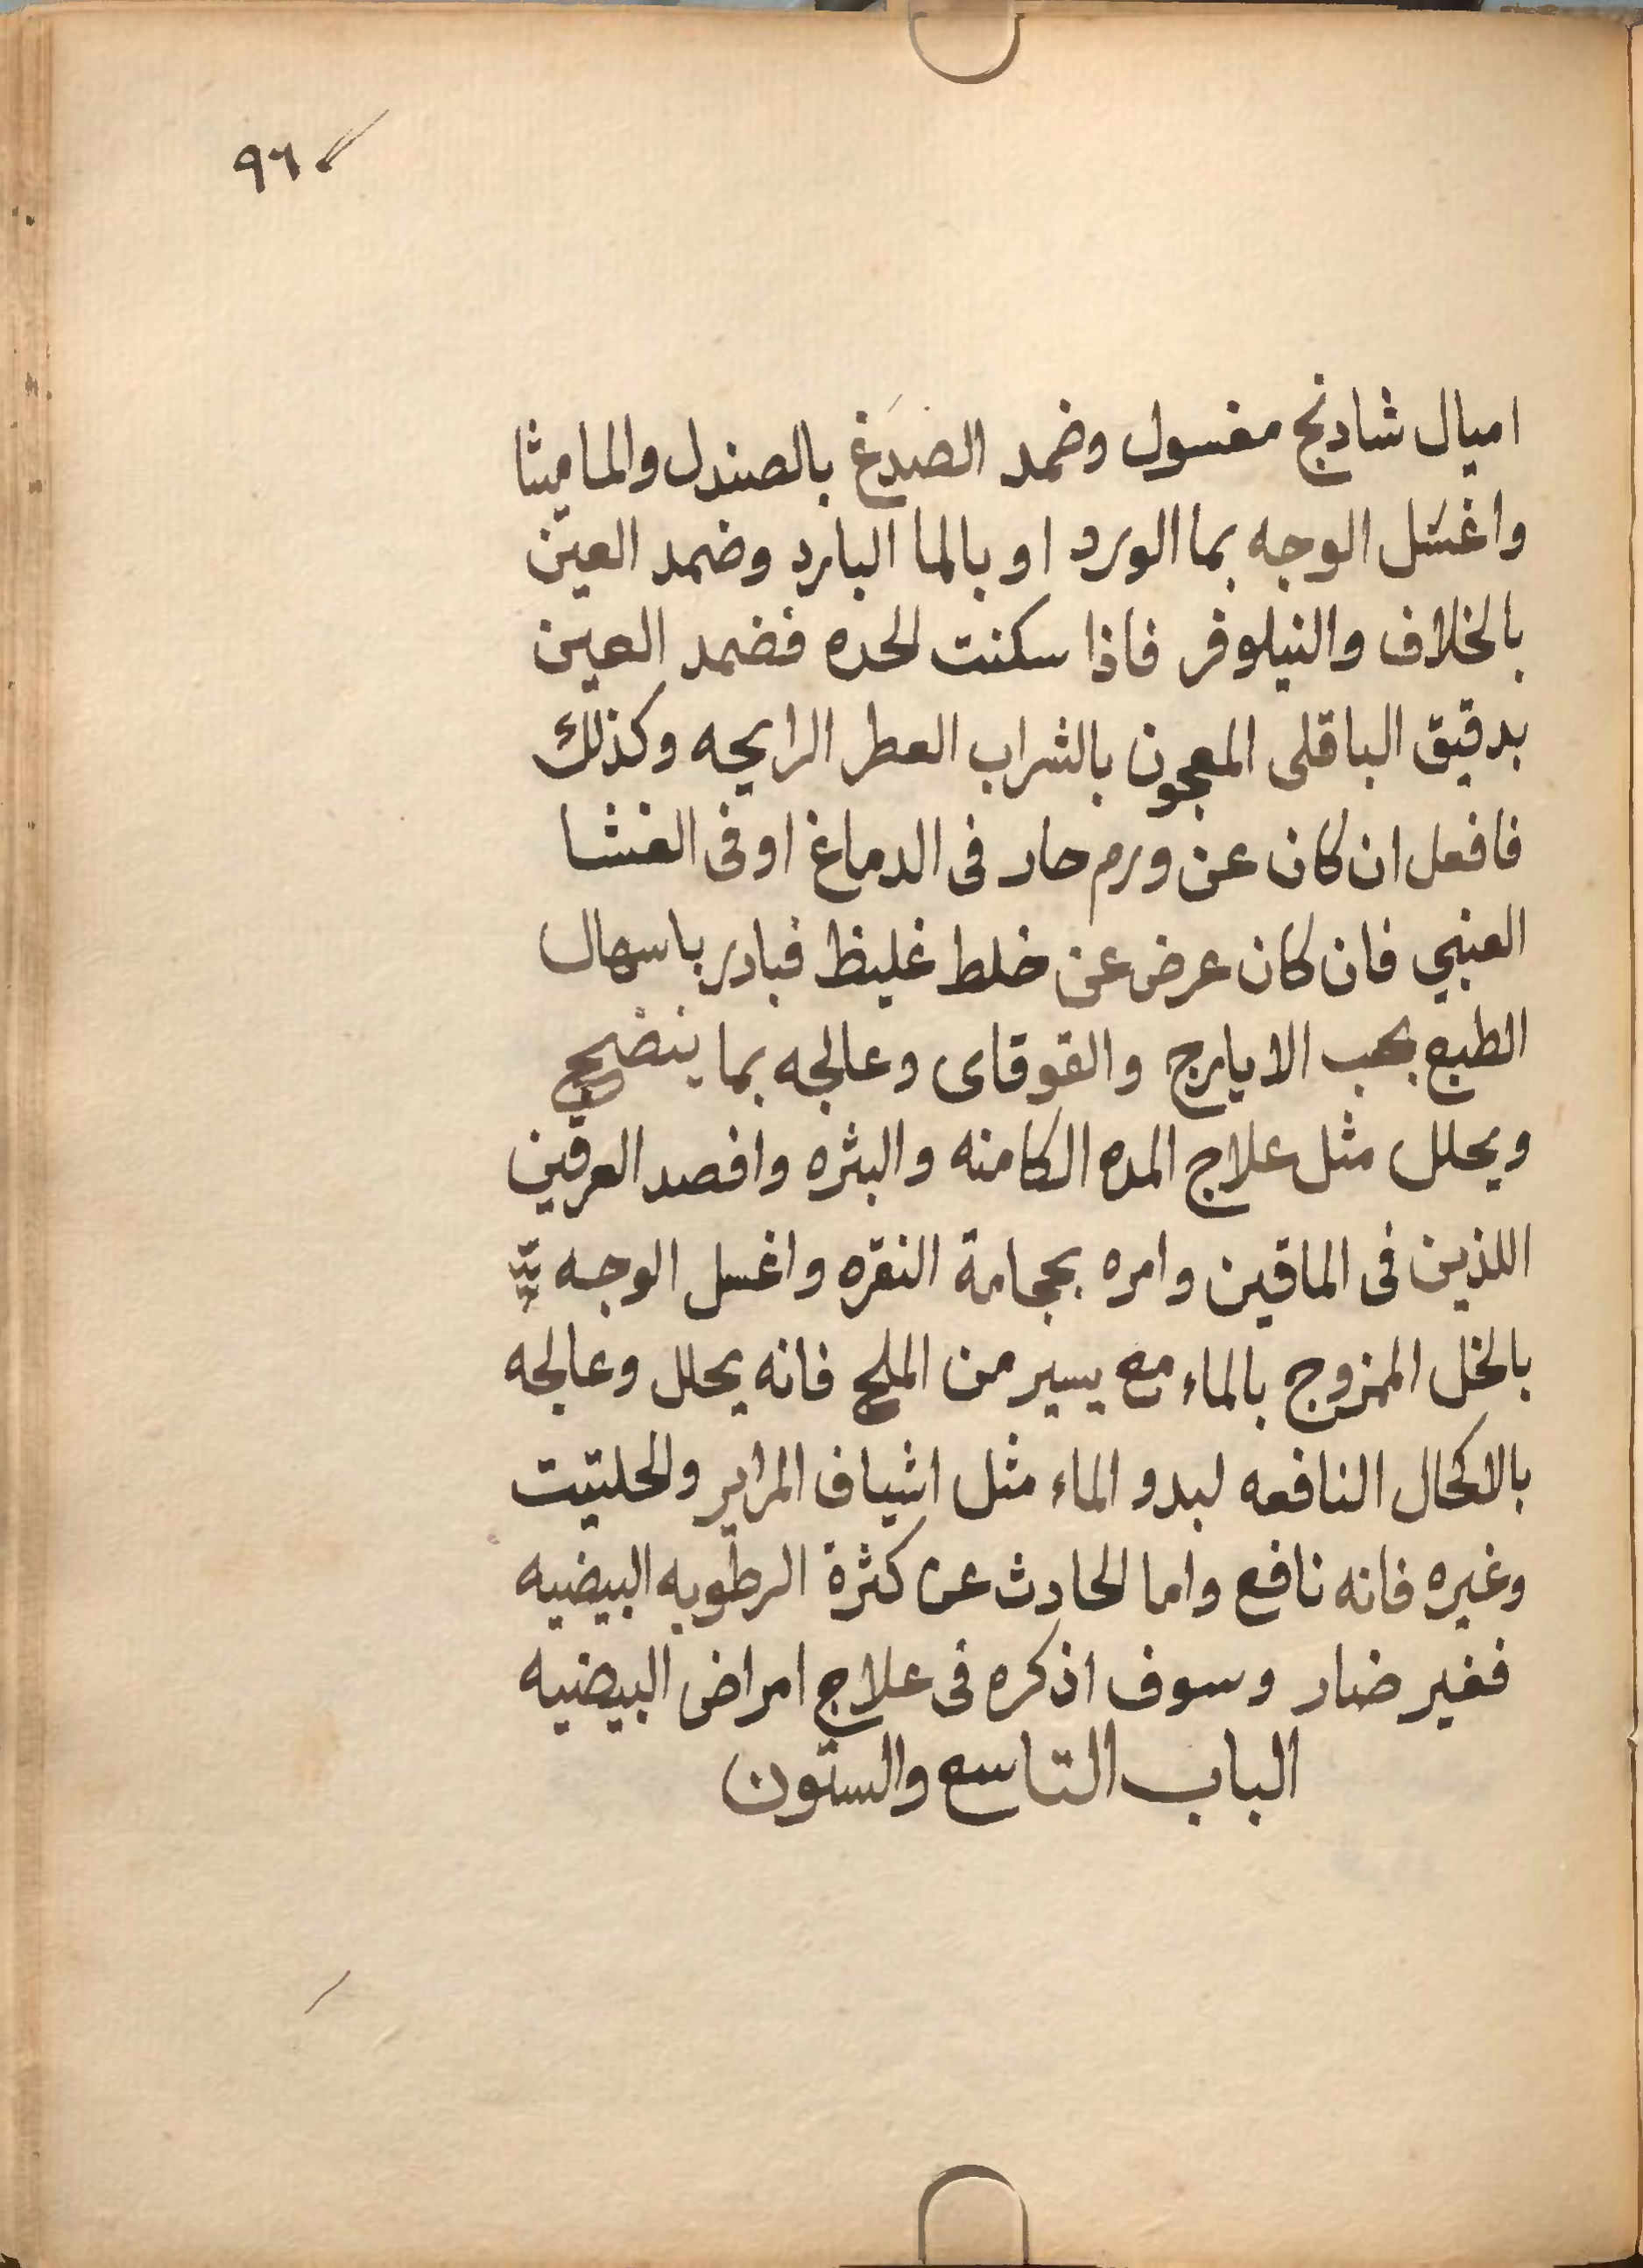 ٩٦
اميال شادنج مغسول وضمد الصدغ بالصندل والماميثا
واغسل الوجه بما الورد او بالما البارد وضمد العين
بالخلاف والنيلوفر فاذا سكنت الحده فضمد العين
بدقيق الباقلى المعجون بالشراب العطر الرايحه وكذلك
فافعل ان كان عن ورم حار فى الدماغ او فى الغشا
العنبي فان كان عرض عن خلط غليظ فبادر باسهال
الطبع بحب الايارج والقوقاى وعالجه بما ينضج
ويحلل مثل علاج المده الكامنه والبثره وافصد العرقين
اللذين فى الماقين وامره بحجامة النقره واغسل الوجه
بالخل الممزوج بالماء مع يسير من الملح فانه يحلل وعالجه
بالاكحال النافعه لبدو الماء مثل اشياف المراير والحلتيت
وغيره فانه نافع واما الحادث عن كثرة الرطوبه البيضيه
فغير ضار وسوف اذكره فى علاج امراض البيضيه
الباب التاسع والستون